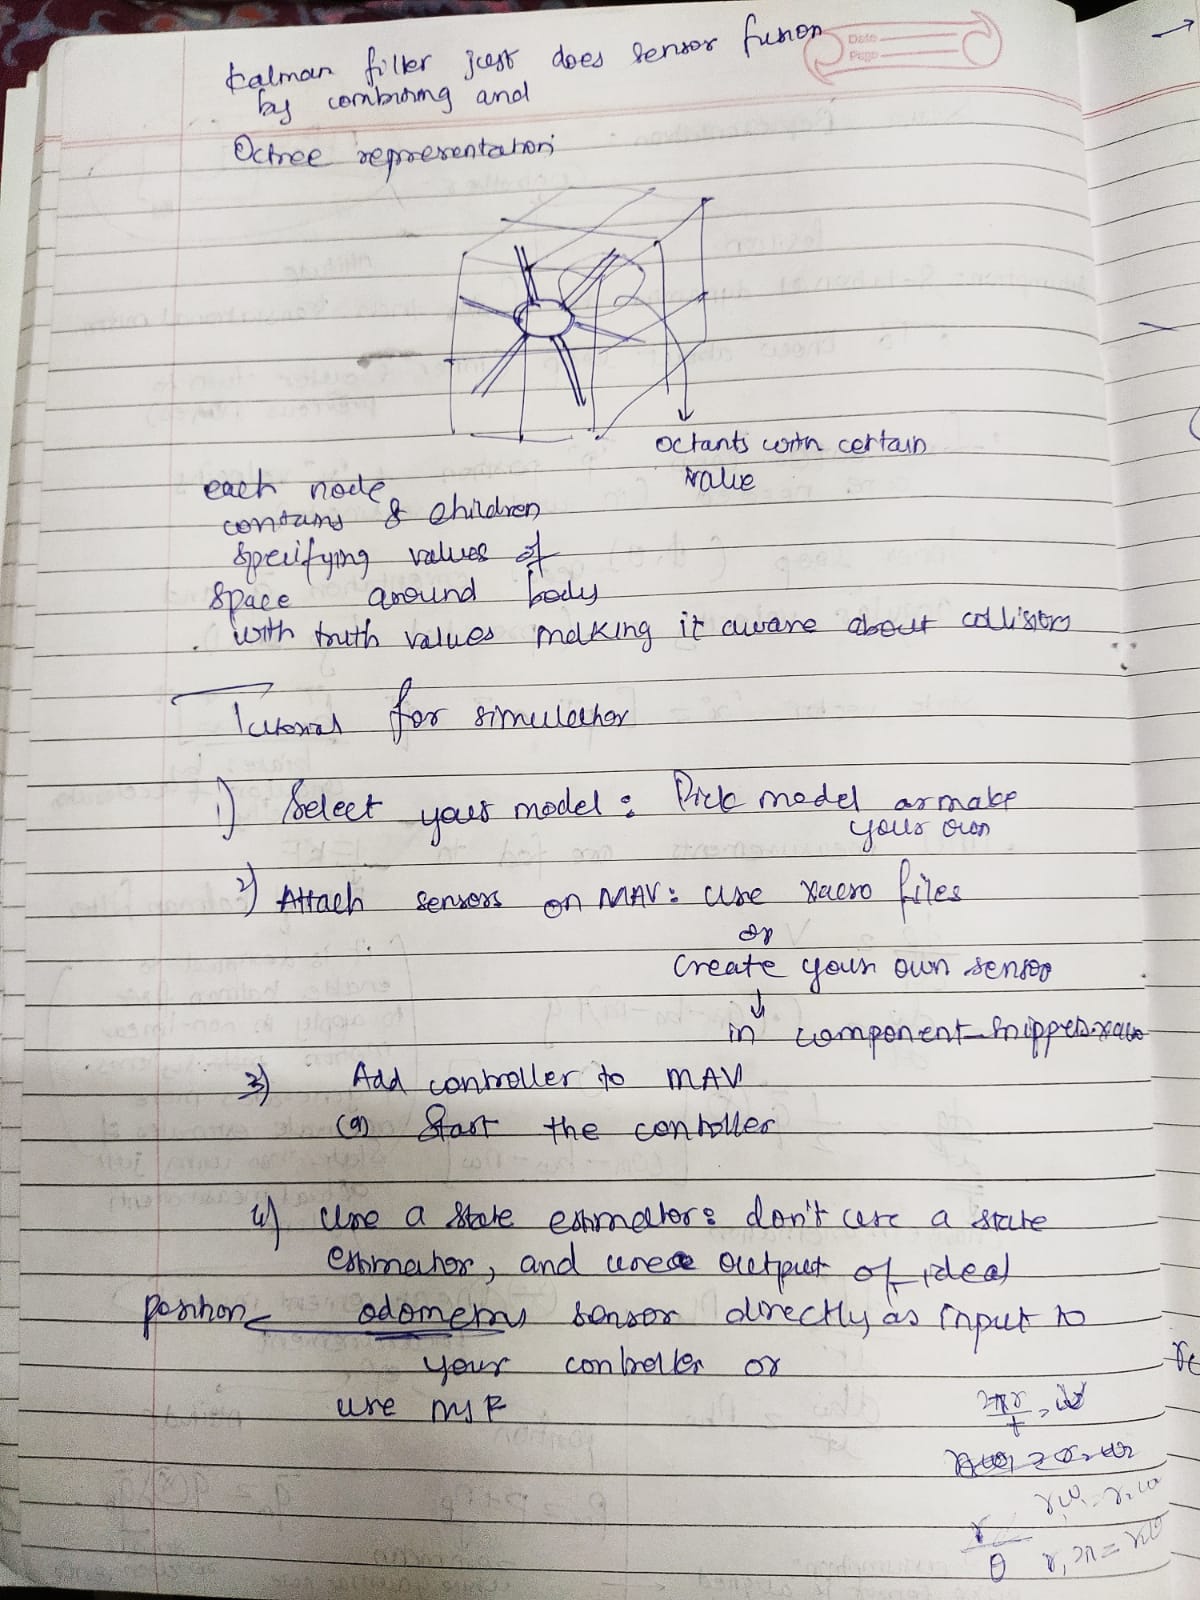 Kalman filter just does sensor fusion
by combining and
Date
Page
Octree representation
octants with certain
value
each node
contains 8 children
specifying values of
space around body
with truth values making it aware about collisions
Tutorial for simulation
1) Select your model: Pick model or make
your own
2) Attach sensors on MAV: Use xacro files
or
Create your own sensor
↓
in component_snippets.xacro
3) Add controller to MAV
(a) Start the controller
4) Use a state estimator: don't use a state
estimator, and use output of ideal
position odometry sensor directly as input to
your controller or
use MSF
2πr/t = 
r/θ